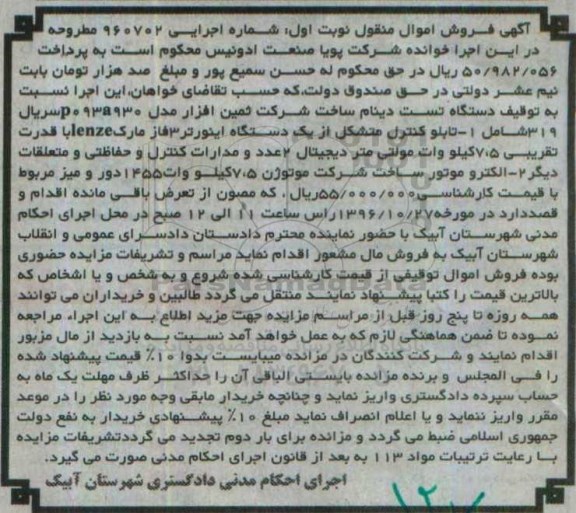 آگهی فروش اموال منقول نوبت اول: شماره اجرایی ۹۶۰۷۰۲ مطروحه
در این اجرا خوانده شرکت پویا صنعت ادونیس محکوم است به پرداخت
۵۰/۹۸۲/۰۵۶ ریال در حق محکوم له حسن سمیع پور و مبلغ صد هزار تومان بابت
نیم عشر دولتی در حق صندوق دولت،که حسب تقاضای خواهان،این اجرا نسبت
به توقیف دستگاه تست دینام ساخت شرکت ثمین افزار مدل p۰۹۳a۹۳۰سریال
۳۱۹شامل ۱-تابلو کنترل متشکل از یک دستگاه اینورتر۳فاز مارکlenzeبا قدرت
تقریبی ۷،۵کیلو وات مولتی متر دیجیتال ۲عدد و مدارات کنترل و حفاظتی و متعلقات
دیگر۲-الکترو موتور ساخت شرکت موتوژن ۷،۵کیلو وات۱۴۵۵دور و میز مربوط
با قیمت کارشناسی۵۵/۰۰۰/۰۰۰ریال ، که مصون از تعرض باقی مانده اقدام و
قصددارد در مورخه۱۳۹۶/۱۰/۲۷راس ساعت ۱۱ الی ۱۲ صبح در محل اجرای احکام
مدنی شهرستان آبیک با حضور نماینده محترم دادستان دادسرای عمومی و انقلاب
شهرستان آبیک به فروش مال مشعور اقدام نماید مراسم و تشریفات مزایده حضوری
بوده فروش اموال توقیفی از قیمت کارشناسی شده شروع و به شخص و یا اشخاص که
بالاترین قیمت را کتبا پیشنهاد نمایند منتقل می گردد طالبین و خریداران می توانند
همه روزه تا پنج روز قبل از مراسم مزایده جهت مزید اطلاع به این اجراء مراجعه
نموده تا ضمن هماهنگی لازم که به عمل خواهد آمد نسبت به بازدید از مال مزبور
اقدام نمایند و شرکت کنندگان در مزانده میبایست بدوا ۱۰٪ قیمت پیشنهاد شده
را فی المجلس و برنده مزانده بایستی الباقی آن را حداکثر ظرف مهلت یک ماه به
حساب سپرده دادگستری واریز نماید و چنانچه خریدار مابقی وجه مورد نظر را در موعد
مقرر واریز ننماید و یا اعلام انصراف نماید مبلغ ۱۰٪ پیشنهادی خریدار به نفع دولت
جمهوری اسلامی ضبط می گردد و مزانده برای بار دوم تجدید می گرددتشریفات مزایده
با رعایت ترتیبات مواد ۱۱۳ به بعد از قانون اجرای احکام مدنی صورت می گیرد.
اجرای احکام مدنی دادگستری شهرستان آبیک
ParsNamadData